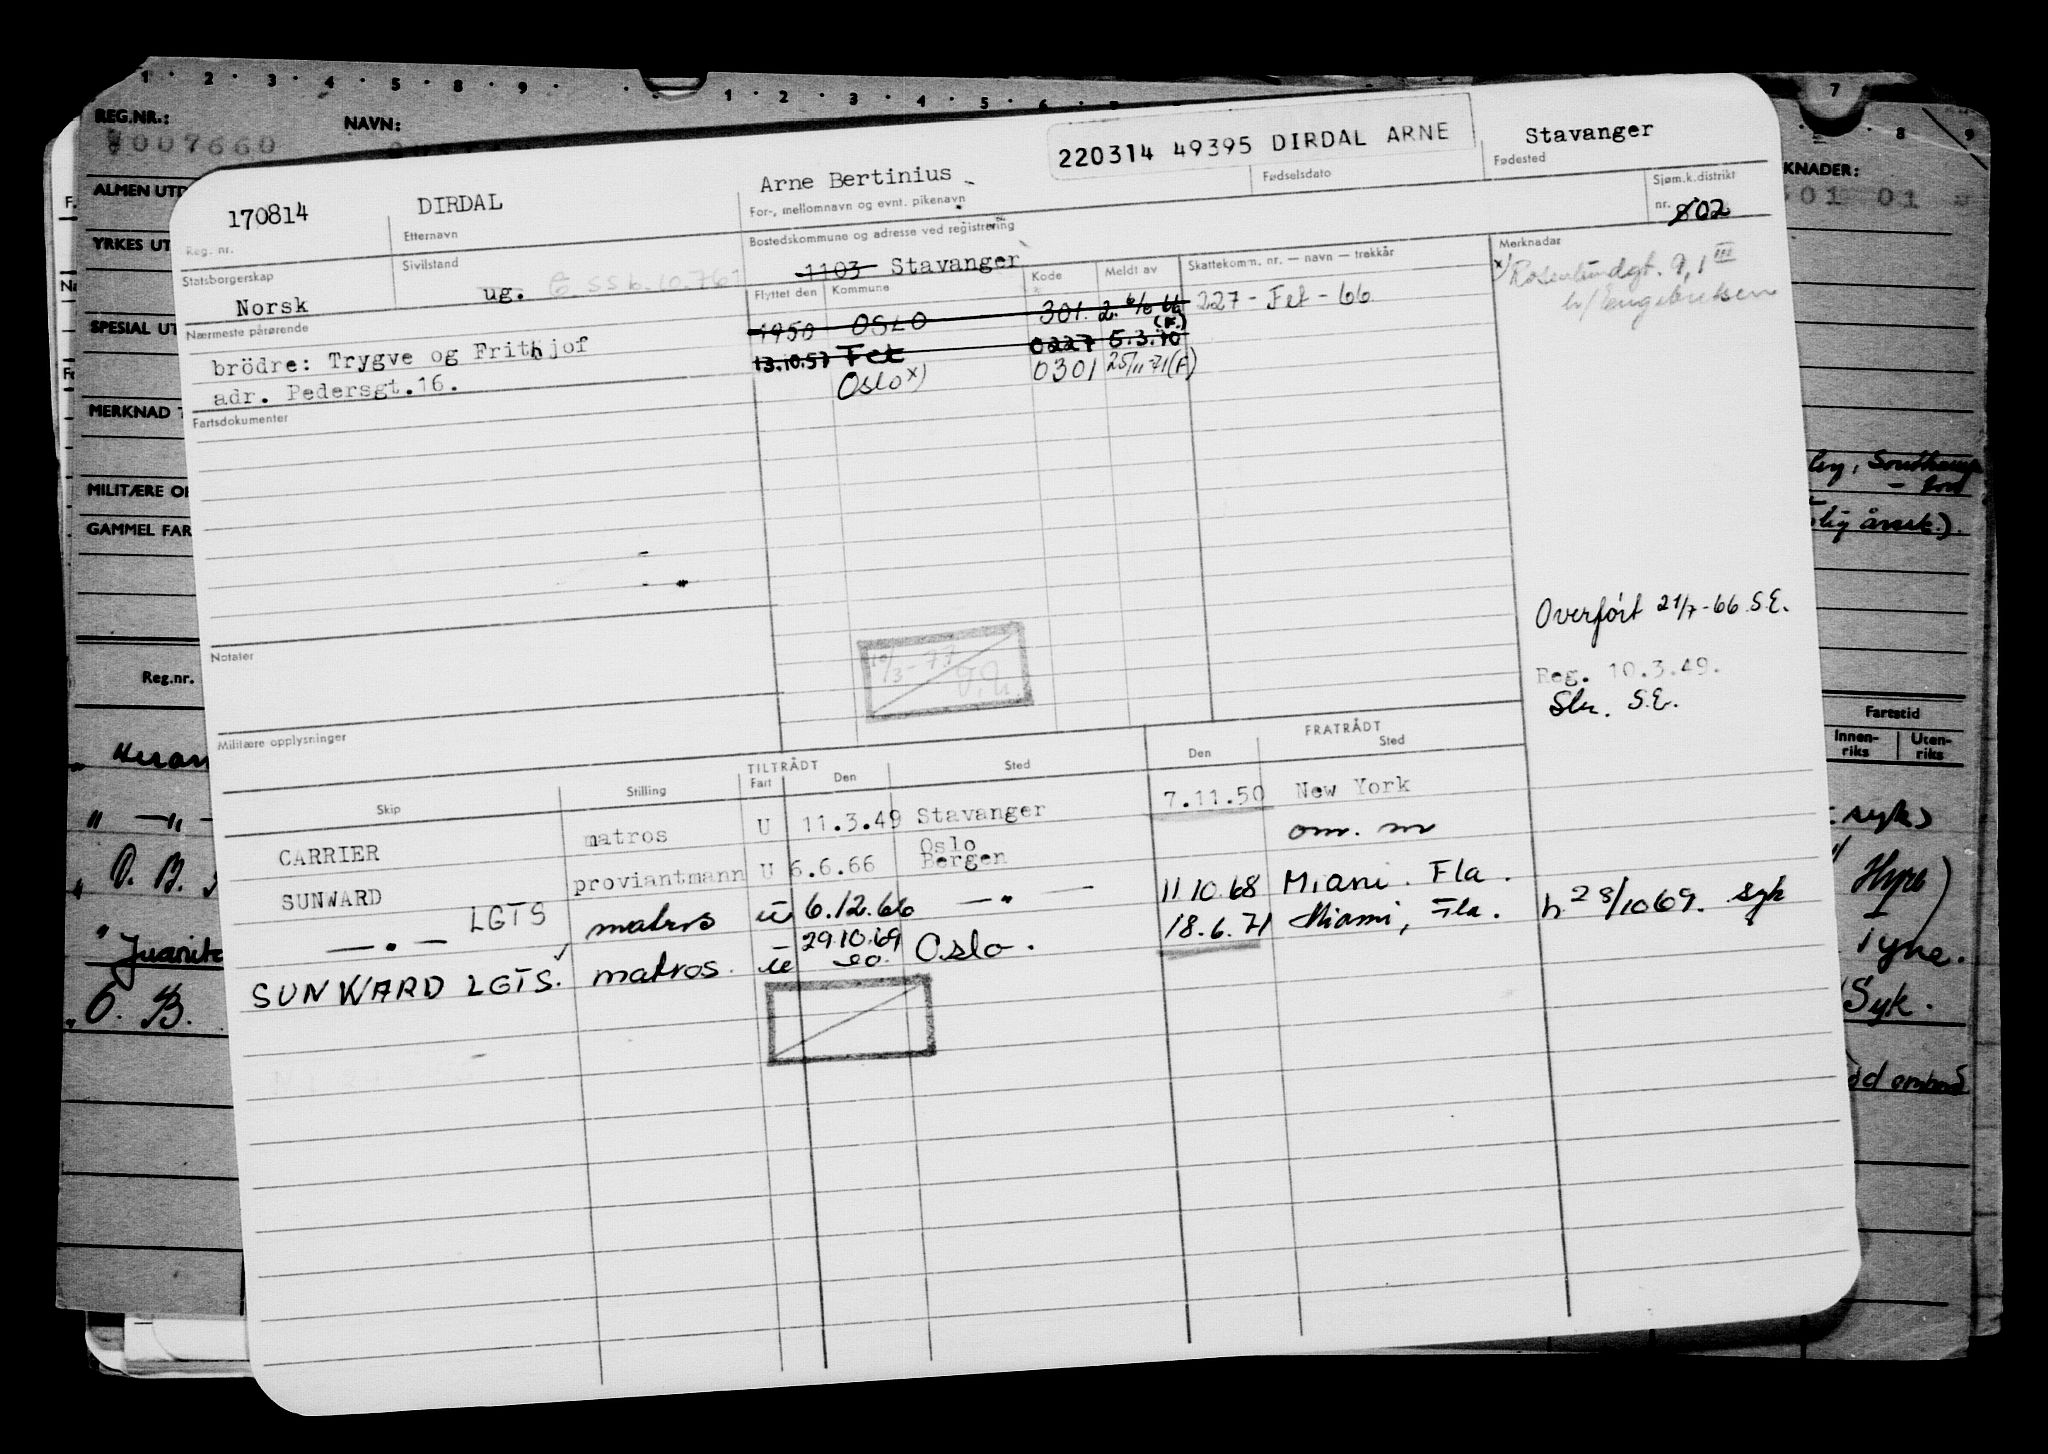 1 2 3 4 5 8 9 1 2 3 4 5 6 7 8 9
REG.NR.:
007660
NAVN:
ALMEN UTD
YRKES UT
SPESIAL UT
MERKNAD T
MILITÆRE OP
GAMMEL FAR
Reg.nr.
KNADER:
01 01
170814
Reg. nr.
DIRDAL
Etternavn
Arne Bertinius
For-, mellomnavn og evnt. pikenavn
220314 49395 DIRDAL ARNE
Fødselsdato
Stavanger
Fødested
Statsborgerskap
Norsk
Sivilstand
ug.
Bostedskommune og adresse ved registrering
1103 Stavanger
Sjøm.k.distrikt
nr. 802
Nærmeste pårørende
brödre: Trygve og Frithjof
adr. Pedersgt.16.
Flyttet den Kommune Kode Meldt av Skattekomm. nr. — navn — trekkår
1950 OSLO 301. 2. 6/6 66 (F.) 227 - Fet - 66
13.10.57 Fet 0227 5.3.70
Oslo x) 0301 25/11-71 (F)
Merknader
x) Rosenlundgt. 9, 1 III
b/ Engebretsen
Fartsdokumenter
Overført 21/7-66 S.E.
Reg. 10.3.49.
Slr. S.E.
Notater
10/3-77
Militære opplysninger
TILTRÅDT
FRATRÅDT
Skip Stilling Fart Den Sted Den Sted
CARRIER matros U 11.3.49 Stavanger 7.11.50 New York
SUNWARD proviantmann U 6.6.66 Oslo Bergen om. m
— " — LGTS matros u 6.12.66 — " — 11 10.68 Miami. Fla.
SUNWARD LGTS. matros. u 29.10.69 Oslo. 18.6.71 Miami, Fla. h 28/10 69. syk
Fartstid
Innen-
riks
Uten-
riks
syk)
Hyre)
" Juanita
Tyne.
O. B.
Syk.